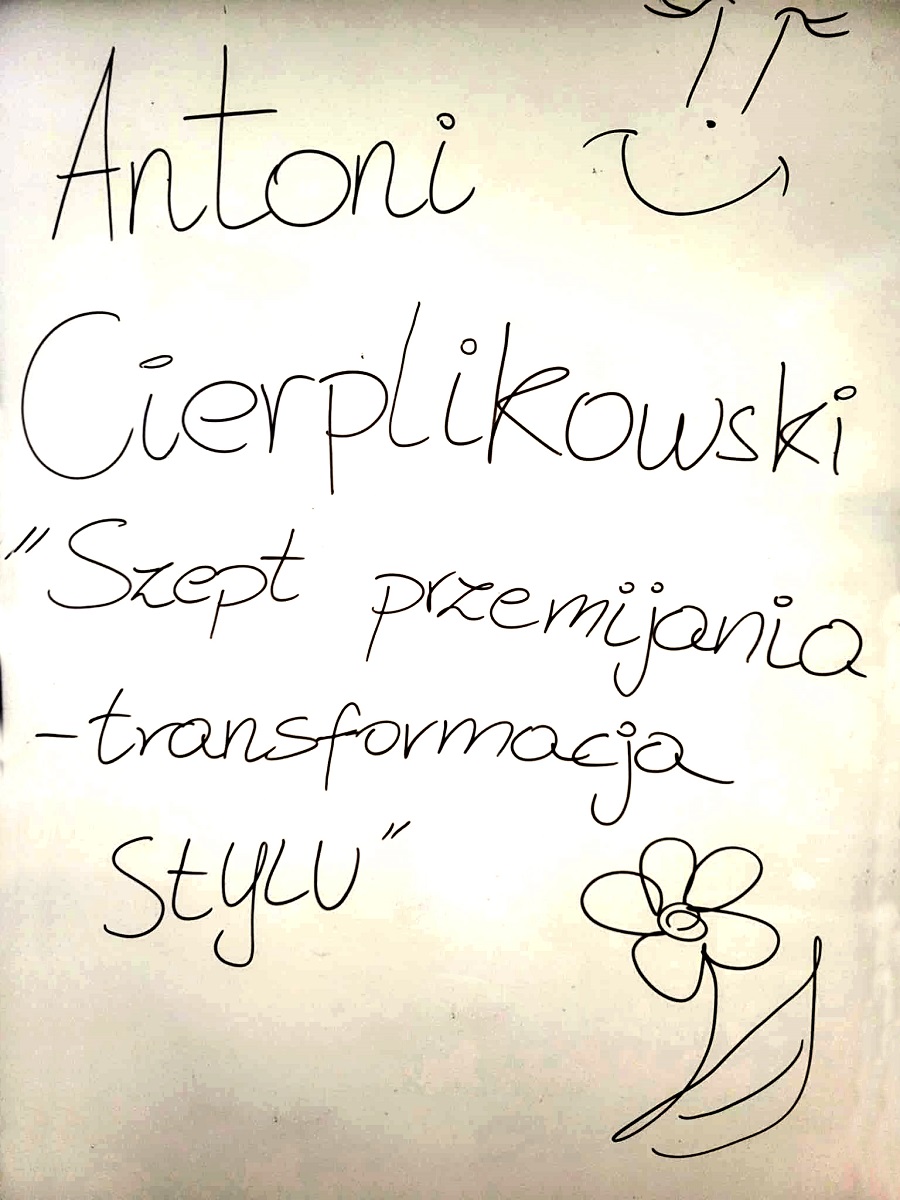 Antoni
Cierplikowski
"Szept przemijania
-transformacja
stylu"